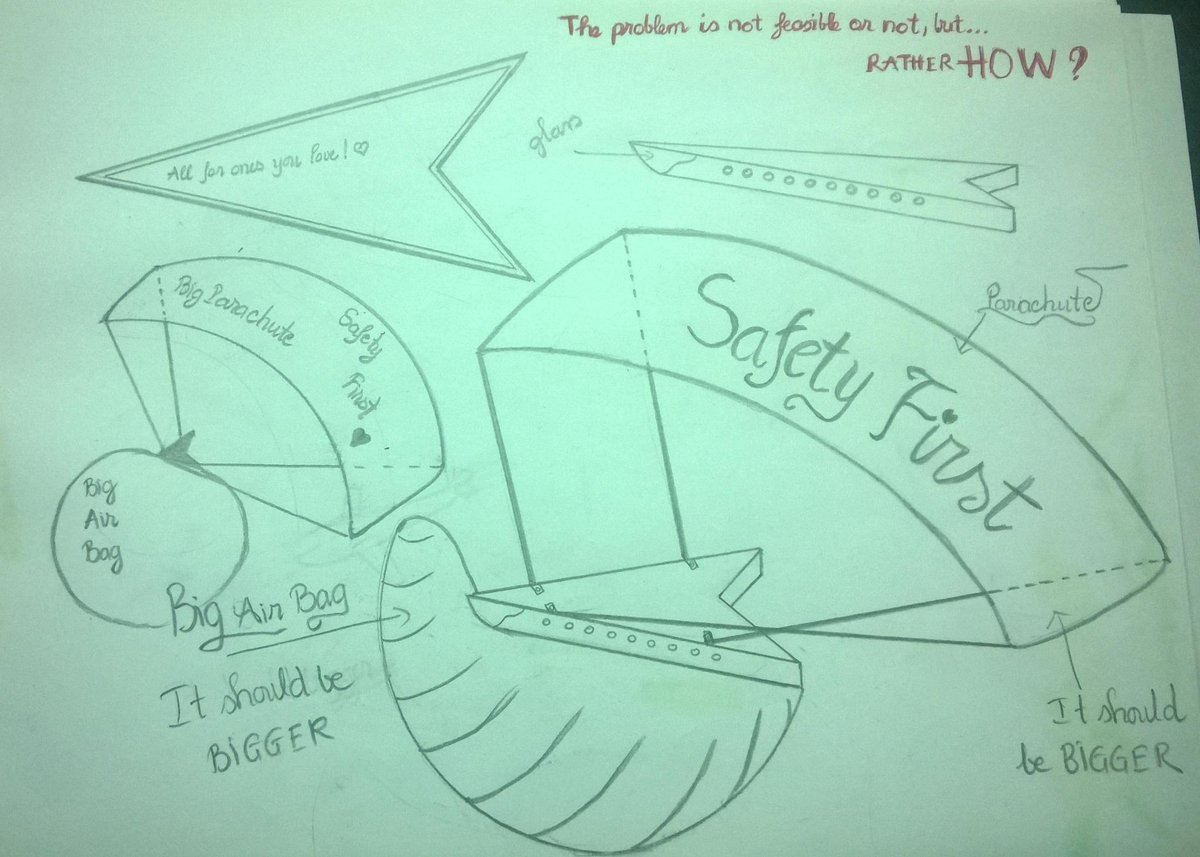 The problem is not feasible or not, but...
RATHER HOW?
All for ones you love!
glass
Parachute
Big Parachute
Safety
First
Safety First
Big
Air
Bag
Big Air Bag
It should be
BIGGER
It should
be BIGGER